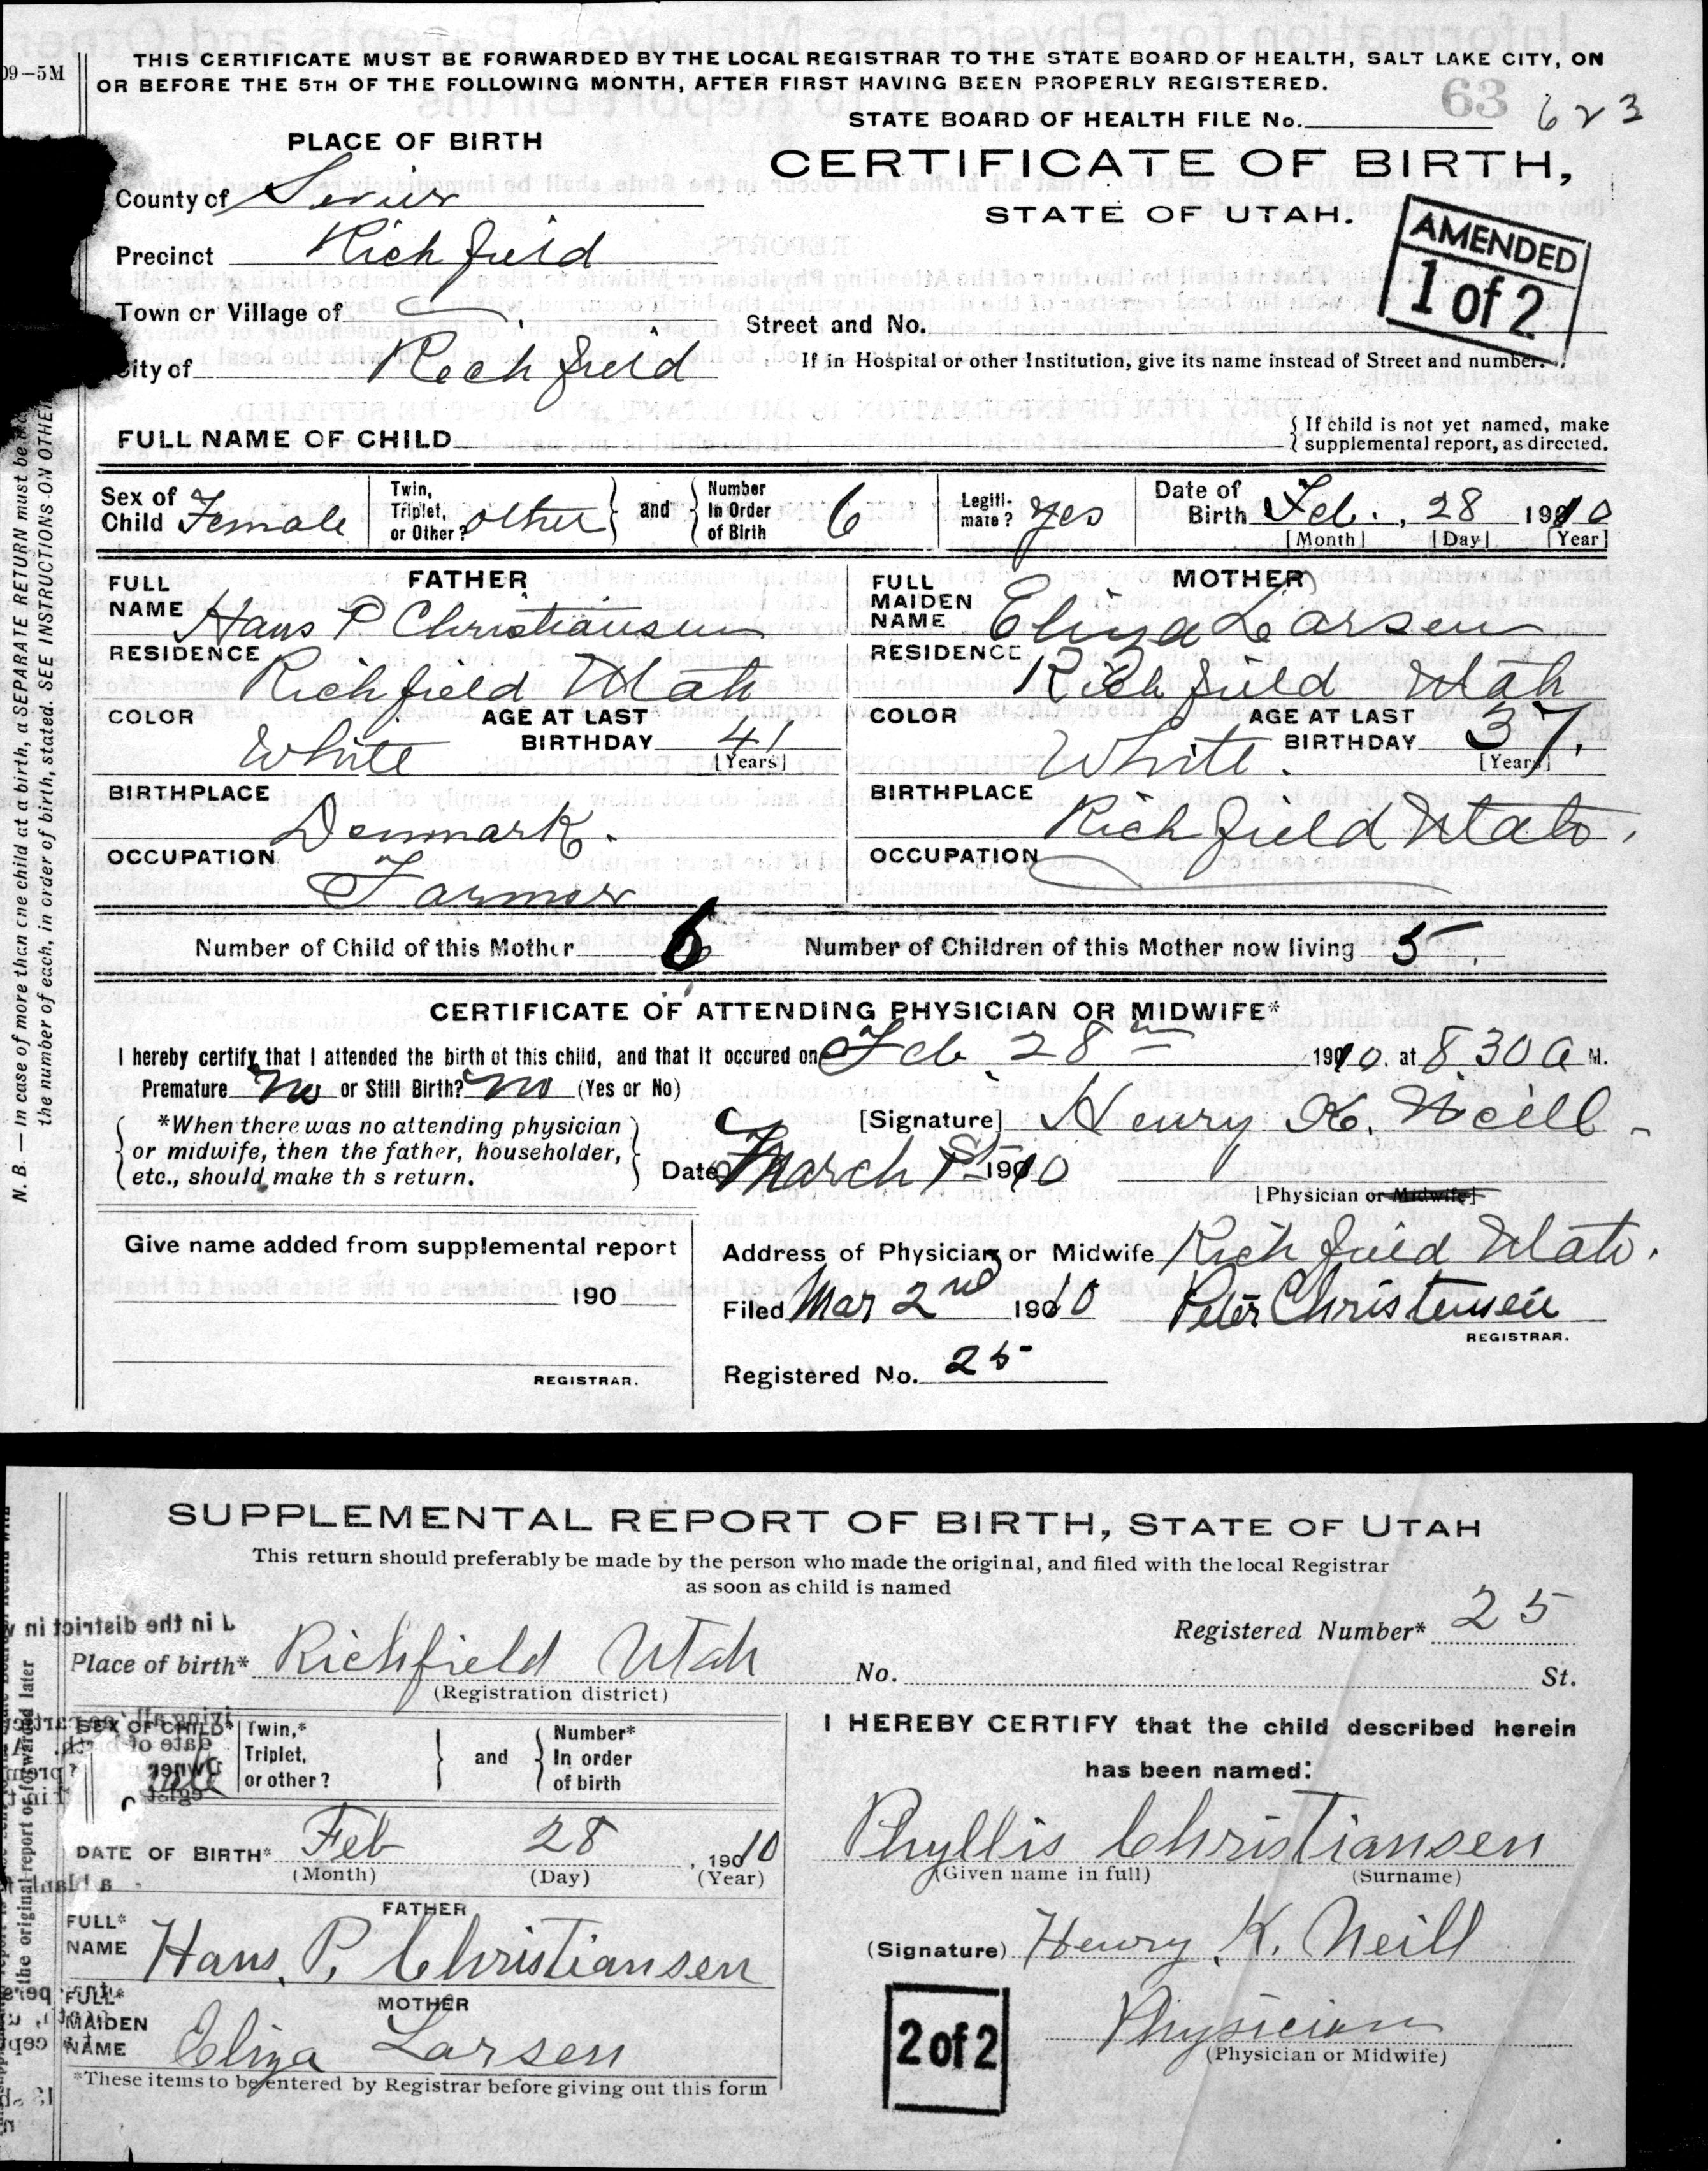 THIS CERTIFICATE MUST BE FORWARDED BY THE LOCAL REGISTRAR TO THE STATE BOARD OF HEALTH, SALT LAKE CITY, ON
OR BEFORE THE 5TH OF THE FOLLOWING MONTH, AFTER FIRST HAVING BEEN PROPERLY REGISTERED.
09-5M
63 623
STATE BOARD OF HEALTH FILE No.
PLACE OF BIRTH
CERTIFICATE OF BIRTH,
STATE OF UTAH.
AMENDED
1 of 2
County of Sevier
Precinct Richfield
Town or Village of
Street and No.
City of Richfield
If in Hospital or other Institution, give its name instead of Street and number.
FULL NAME OF CHILD
If child is not yet named, make
supplemental report, as directed.
Sex of Child Female
Twin, Triplet, or Other? other and Number In Order of Birth 6
Legitimate? yes
Date of Birth Feb. , 28 1910
[Month] [Day] [Year]
FATHER
FULL NAME Hans P Christiansen
RESIDENCE Richfield Utah
COLOR White AGE AT LAST BIRTHDAY 41
[Years]
BIRTHPLACE Denmark.
OCCUPATION Farmer
MOTHER
FULL MAIDEN NAME Eliza Larsen
RESIDENCE Richfield Utah
COLOR White. AGE AT LAST BIRTHDAY 37.
[Years]
BIRTHPLACE Richfield Utah.
OCCUPATION
Number of Child of this Mother 6 Number of Children of this Mother now living 5
CERTIFICATE OF ATTENDING PHYSICIAN OR MIDWIFE*
I hereby certify that I attended the birth of this child, and that it occured on Feb 28th 1910. at 8.30 a M.
Premature no or Still Birth? no (Yes or No)
*When there was no attending physician
or midwife, then the father, householder,
etc., should make th s return.
[Signature] Henry K. Neill
Date March 1st 1910
[Physician or Midwife]
Give name added from supplemental report
190
REGISTRAR.
Address of Physician or Midwife Richfield Utah.
Filed Mar 2nd 1910 Peter Christensen
REGISTRAR.
Registered No. 25
N. B. — In case of more than one child at a birth, a SEPARATE RETURN must be
the number of each, in order of birth, stated. SEE INSTRUCTIONS ON OTHER
SUPPLEMENTAL REPORT OF BIRTH, STATE OF UTAH
This return should preferably be made by the person who made the original, and filed with the local Registrar
as soon as child is named
Registered Number* 25
Place of birth* Richfield Utah No. St.
(Registration district)
SEX OF CHILD*
Twin,* Triplet, or other? and Number* In order of birth
DATE OF BIRTH* Feb 28, 1910
(Month) (Day) (Year)
FATHER
FULL* NAME Hans. P. Christiansen
MOTHER
FULL* MAIDEN NAME Eliza Larsen
*These items to be entered by Registrar before giving out this form
I HEREBY CERTIFY that the child described herein
has been named:
Phyllis Christiansen
(Given name in full) (Surname)
(Signature) Henry K. Neill
Physician
(Physician or Midwife)
2 of 2
the original report or forwarded later